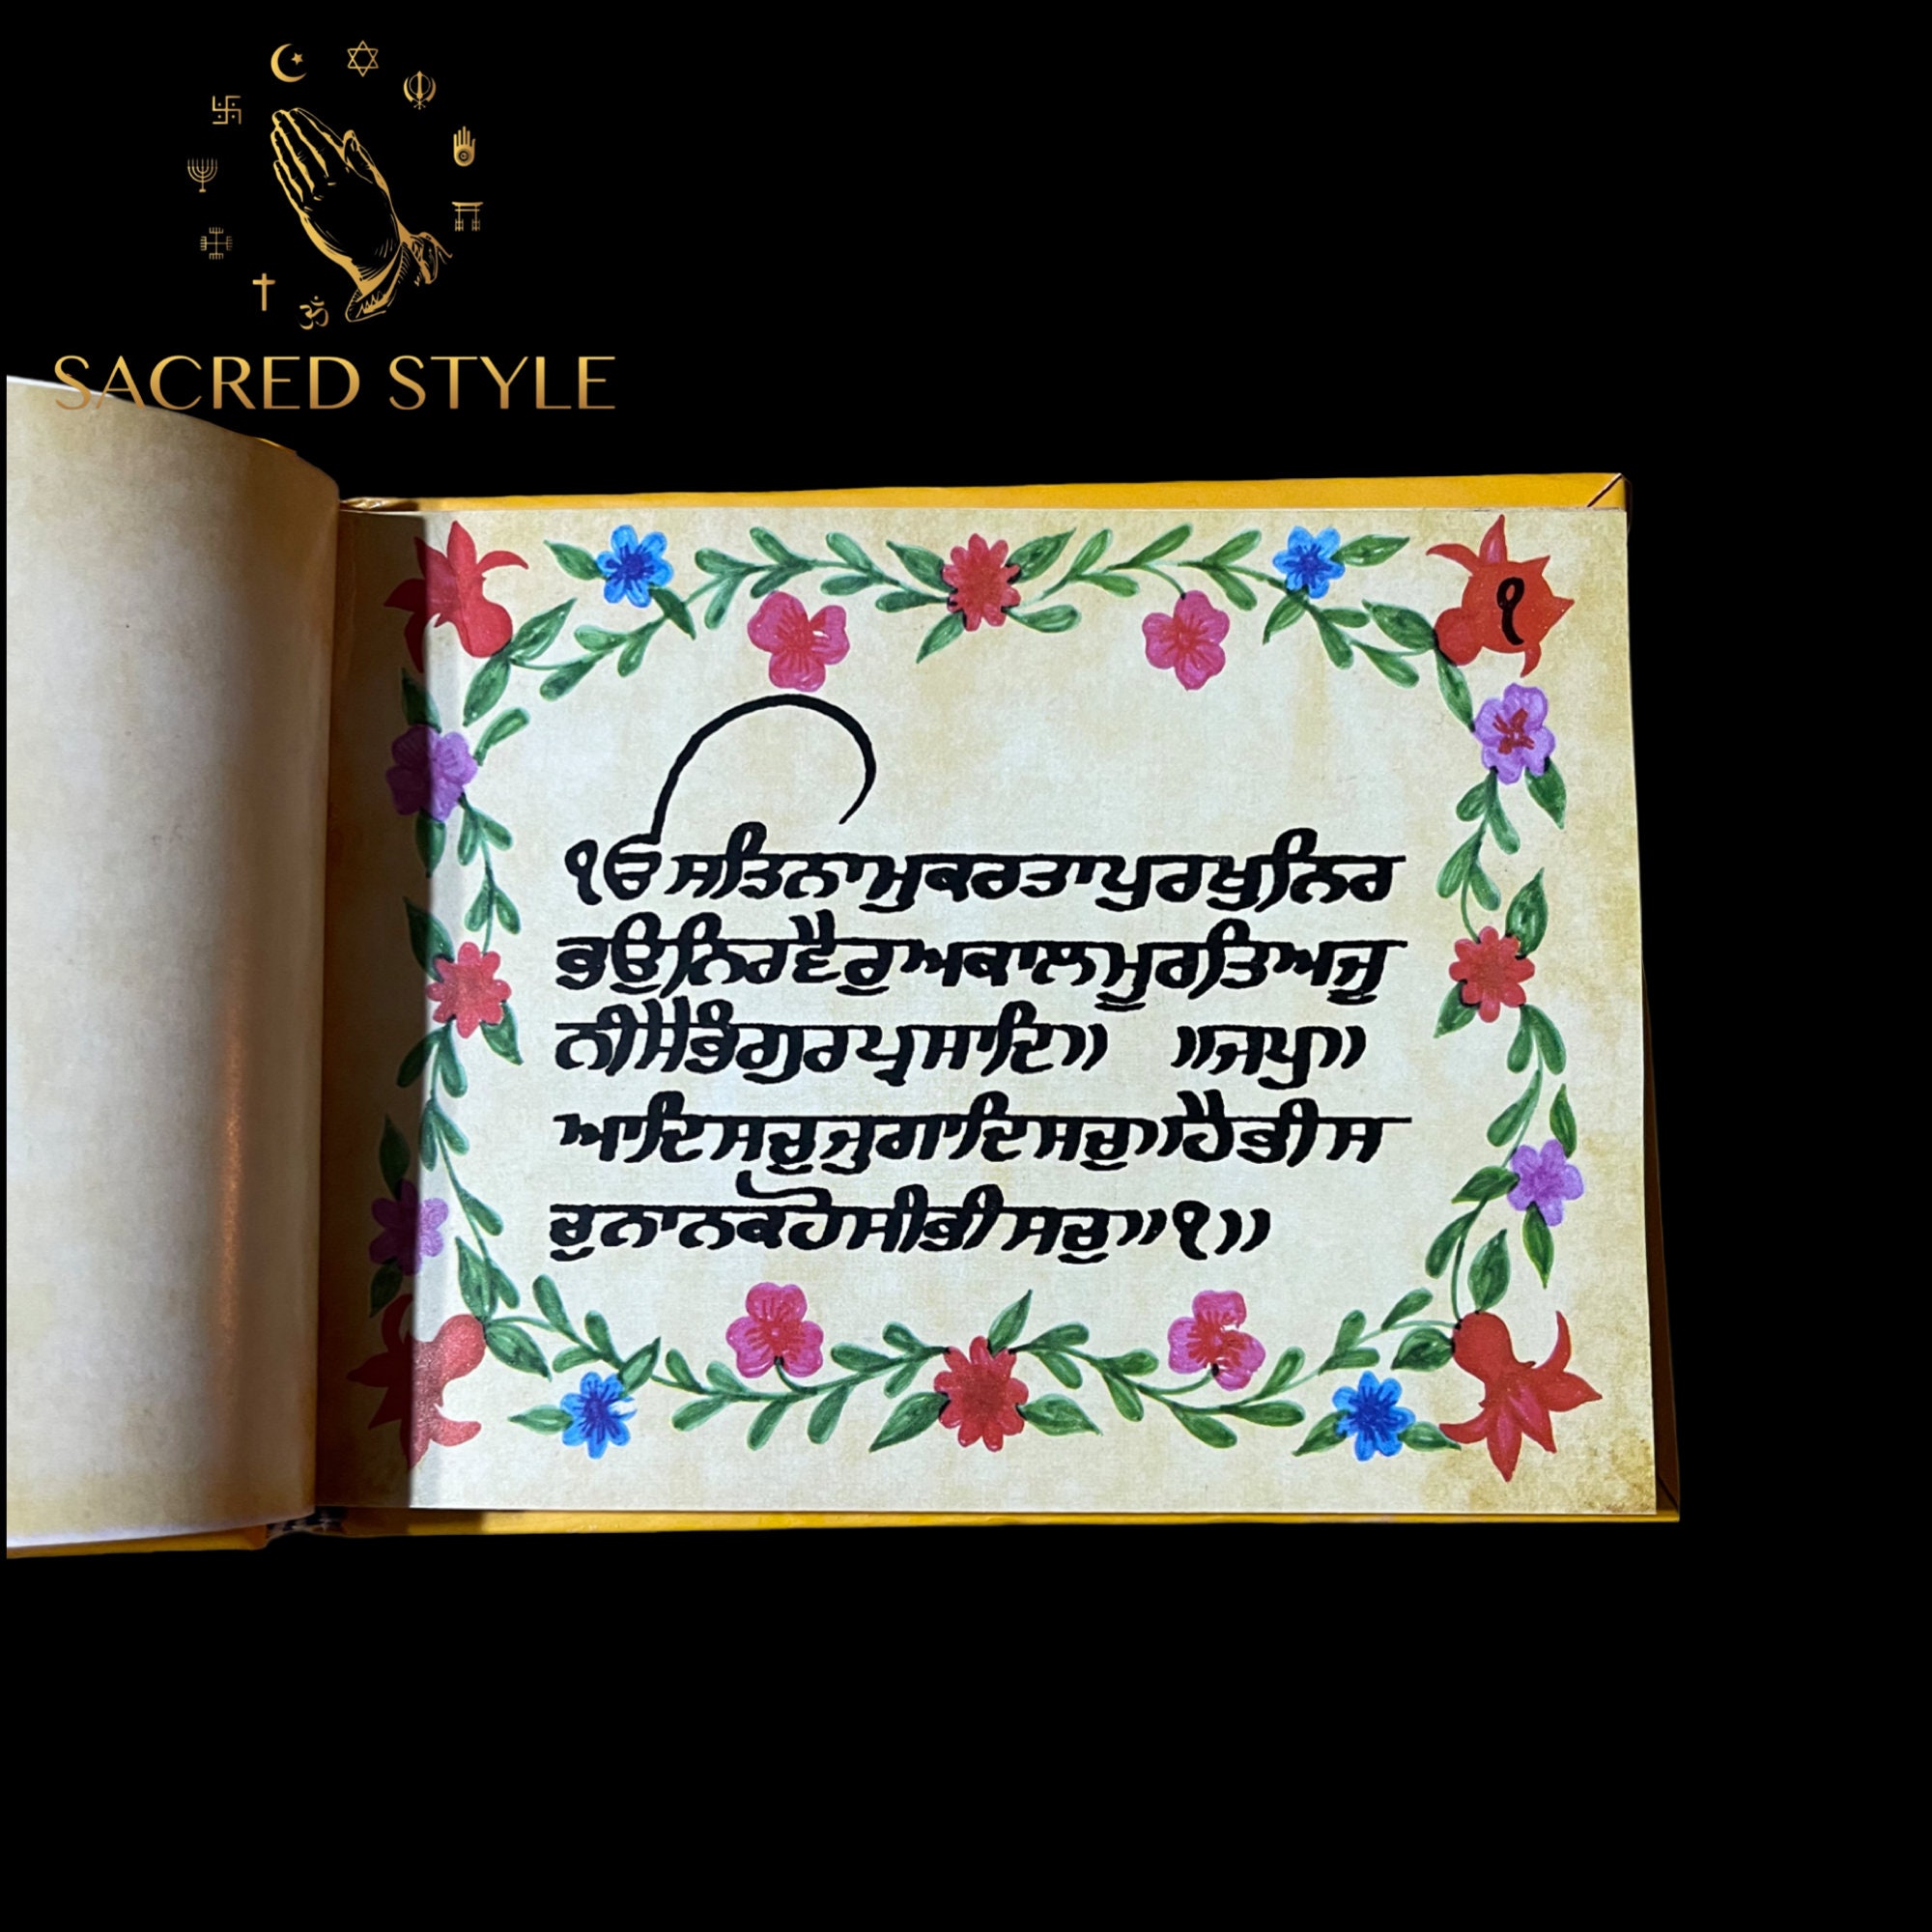 SACRED STYLE
੧
ੴਸਤਿਨਾਮੁਕਰਤਾਪੁਰਖੁਨਿਰ
ਭਉਨਿਰਵੈਰੁਅਕਾਲਮੂਰਤਿਅਜੂ
ਨੀਸੈਭੰਗੁਰਪ੍ਰਸਾਦਿ॥ ॥ਜਪੁ॥
ਆਦਿਸਚੁਜੁਗਾਦਿਸਚੁ॥ਹੈਭੀਸ
ਚੁਨਾਨਕਹੋਸੀਭੀਸਚੁ॥੧॥